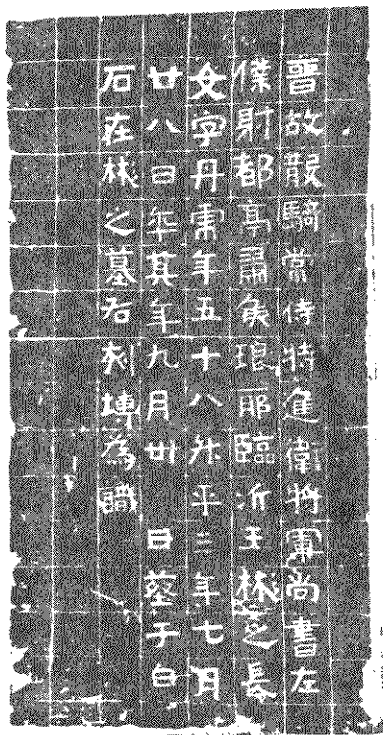 晉故散騎常侍特進衛將軍尚書左
僕射都亭肅侯琅耶臨沂王彬之長
女字丹虎年五十八升平三年七月
廿八日卒其年九月卅日塟于白
石在彬之墓右刻塼為識